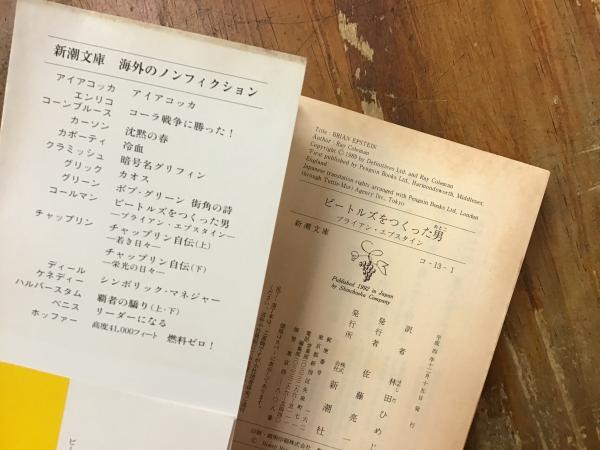 新潮文庫 海外のノンフィクション
アイアコッカ アイアコッカ
エンリコ
コーンブルース コーラ戦争に勝った!
カーソン 沈黙の春
カポーティ 冷血
クラミッシュ 暗号名グリフィン
グリック カオス
グリーン ボブ・グリーン 街角の詩
コールマン ビートルズをつくった男
―ブライアン・エプスタイン―
チャップリン チャップリン自伝(上)
―若き日々―
チャップリン自伝(下)
―栄光の日々―
ディール
ケネディー シンボリック・マネジャー
ハルバースタム 覇者の驕り(上・下)
ベニス リーダーになる
ホッファー 高度41,000フィート 燃料ゼロ!
Title : BRIAN EPSTEIN
Author : Ray Coleman
Copyright © 1989 by Definitives Ltd. and Ray Coleman
First published by Penguin Books Ltd., Harmondsworth, Middlesex,
England
Japanese translation rights arranged with Penguin Books Ltd., London
through Tuttle-Mori Agency Inc., Tokyo
ビートルズをつくった男
ブライアン・エプスタイン
新潮文庫
コ-13-1
Published 1992 in Japan
by Shinchosha Company
平成四年十二月十五日 発行
訳者 林田ひめじ
発行者 佐藤亮一
発行所 株式会社 新潮社
郵便番号
東京都新宿区矢来町七一